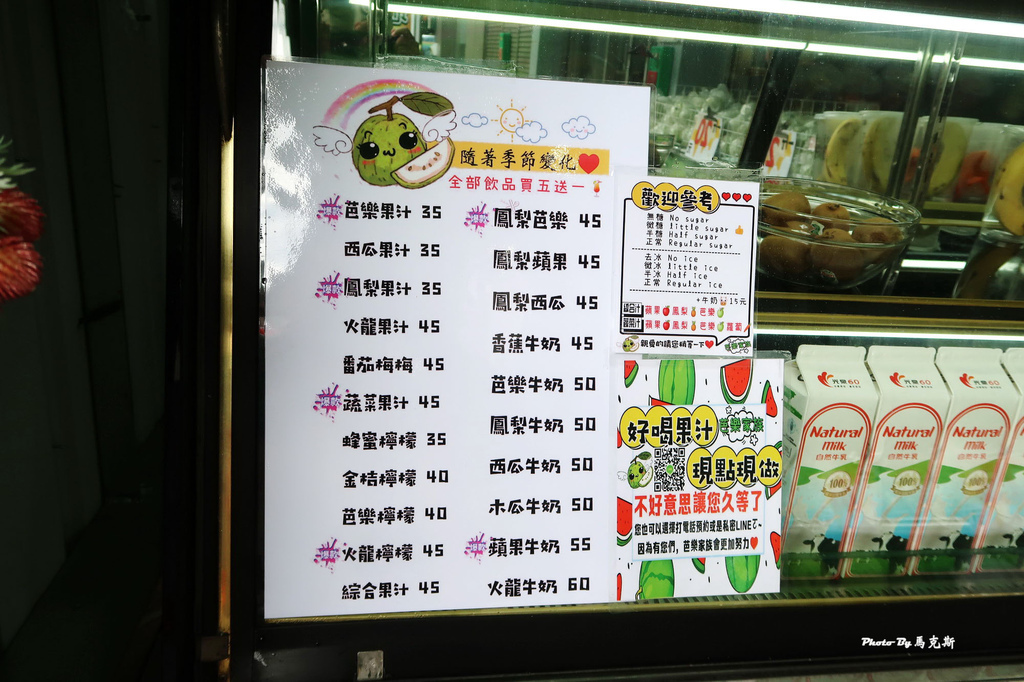 隨著季節變化
全部飲品買五送一
爆款 芭樂果汁 35
西瓜果汁 35
爆款 鳳梨果汁 35
火龍果汁 45
番茄梅梅 45
爆款 蔬菜果汁 45
蜂蜜檸檬 35
金桔檸檬 40
芭樂檸檬 40
爆款 火龍檸檬 45
綜合果汁 45
爆款 鳳梨芭樂 45
鳳梨蘋果 45
鳳梨西瓜 45
香蕉牛奶 45
芭樂牛奶 50
鳳梨牛奶 50
西瓜牛奶 50
木瓜牛奶 50
爆款 蘋果牛奶 55
火龍牛奶 60
歡迎參考
無糖 No sugar
微糖 little sugar
半糖 Half sugar
正常 Regular sugar
去冰 No ice
微冰 little ice
半冰 Half ice
正常 Regular ice
+牛奶 15元
綜合汁 蘋果 鳳梨 芭樂
蘋果 鳳梨 芭樂 蘿蔔
親愛的請您稍等一下
好喝果汁
芭樂家族
現點現做
不好意思讓您久等了
您也可以選擇打電話預約或是私密LINE
因為有您們,芭樂家族會更加努力
光泉60
Natural
Milk
自然牛乳
100%
光泉60
Natural
Milk
自然牛乳
100%
光泉60
Natural
Milk
自然牛乳
100%
Photo By 馬克斯